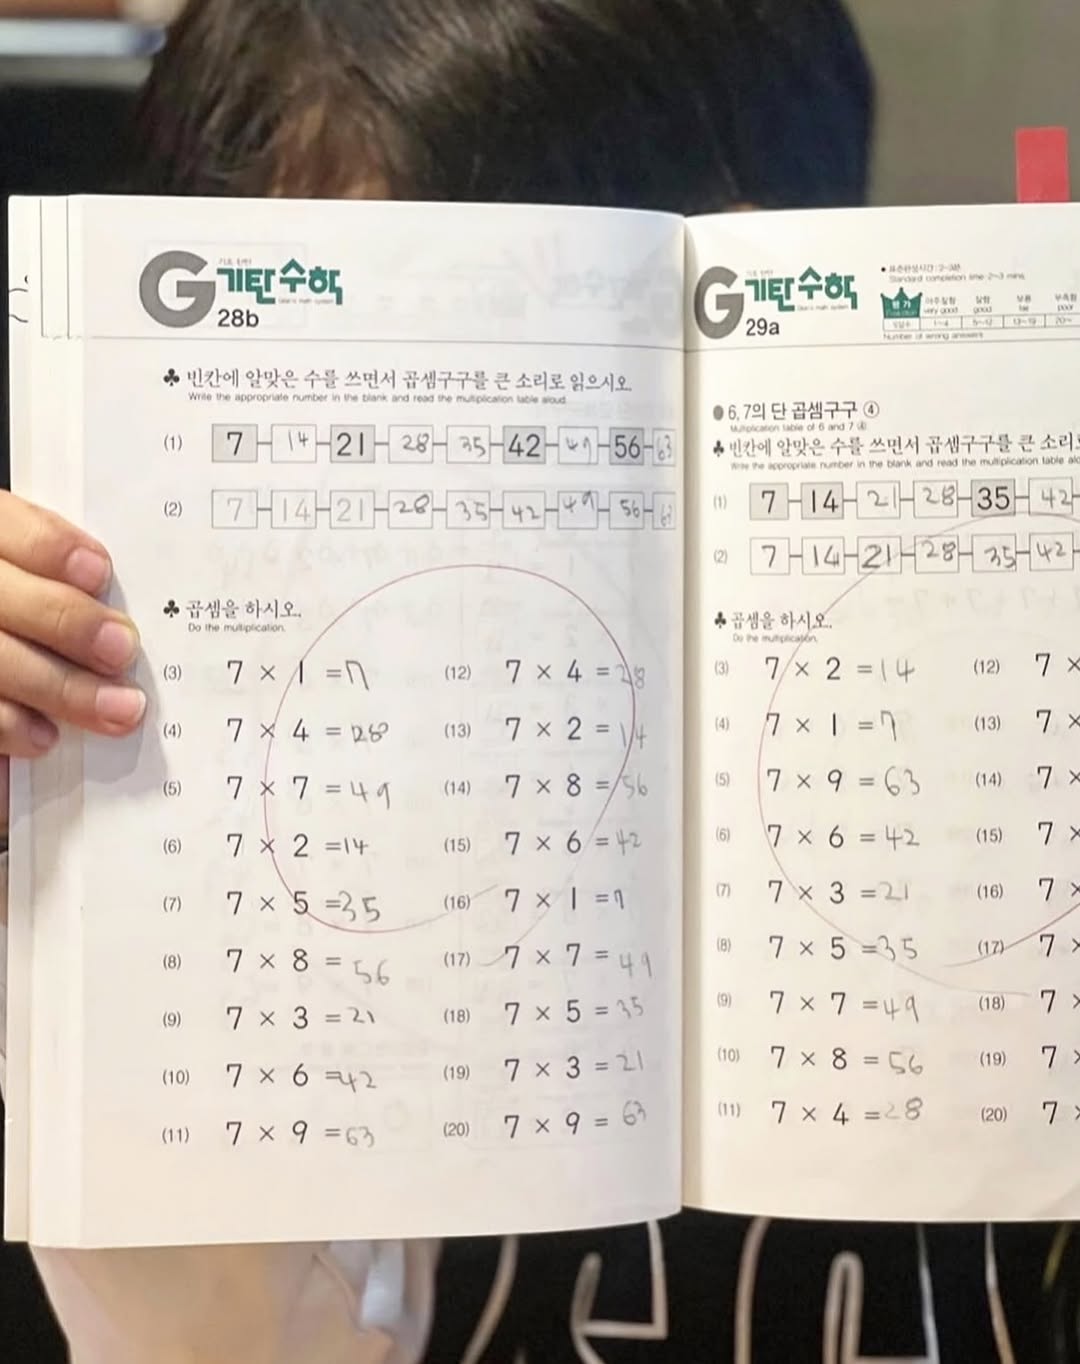 기초 탄탄
G 기탄수학
Gitan's math system
28b
♣ 빈칸에 알맞은 수를 쓰면서 곱셈구구를 큰 소리로 읽으시오.
Write the appropriate number in the blank and read the multiplication table aloud.
(1) 7 14 21 28 35 42 49 56 63
(2) 7 14 21 28 35 42 49 56 63
♣ 곱셈을 하시오.
Do the multiplication.
(3) 7 × 1 = 7
(4) 7 × 4 = 28
(5) 7 × 7 = 49
(6) 7 × 2 = 14
(7) 7 × 5 = 35
(8) 7 × 8 = 56
(9) 7 × 3 = 21
(10) 7 × 6 = 42
(11) 7 × 9 = 63
(12) 7 × 4 = 28
(13) 7 × 2 = 14
(14) 7 × 8 = 56
(15) 7 × 6 = 42
(16) 7 × 1 = 7
(17) 7 × 7 = 49
(18) 7 × 5 = 35
(19) 7 × 3 = 21
(20) 7 × 9 = 63
기초 탄탄
G 기탄수학
Gitan's math system
29a
• 표준완성시간 : 2~3분
Standard completion time 2~3 mins.
평가 아주잘함 잘함 보통 부족함
Evaluation very good good fair poor
오답수 1~4 5~12 13~19 20~
Number of wrong answers
● 6, 7의 단 곱셈구구 ④
Multiplication table of 6 and 7 ④
♣ 빈칸에 알맞은 수를 쓰면서 곱셈구구를 큰 소리
Write the appropriate number in the blank and read the multiplication table
(1) 7 14 21 28 35 42
(2) 7 14 21 28 35 42
♣ 곱셈을 하시오.
Do the multiplication.
(3) 7 × 2 = 14
(4) 7 × 1 = 7
(5) 7 × 9 = 63
(6) 7 × 6 = 42
(7) 7 × 3 = 21
(8) 7 × 5 = 35
(9) 7 × 7 = 49
(10) 7 × 8 = 56
(11) 7 × 4 = 28
(12) 7 ×
(13) 7 ×
(14) 7 ×
(15) 7 ×
(16) 7 ×
(17) 7 ×
(18) 7 ×
(19) 7 ×
(20) 7 ×